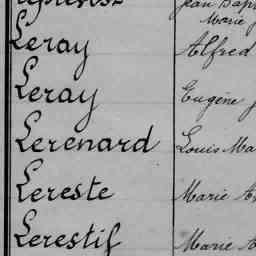 Jean Bap
Marie
Leray Alfred
Leray Eugène J
Lerenard Louis Ma
Lereste Marie A
Lerestif Marie A